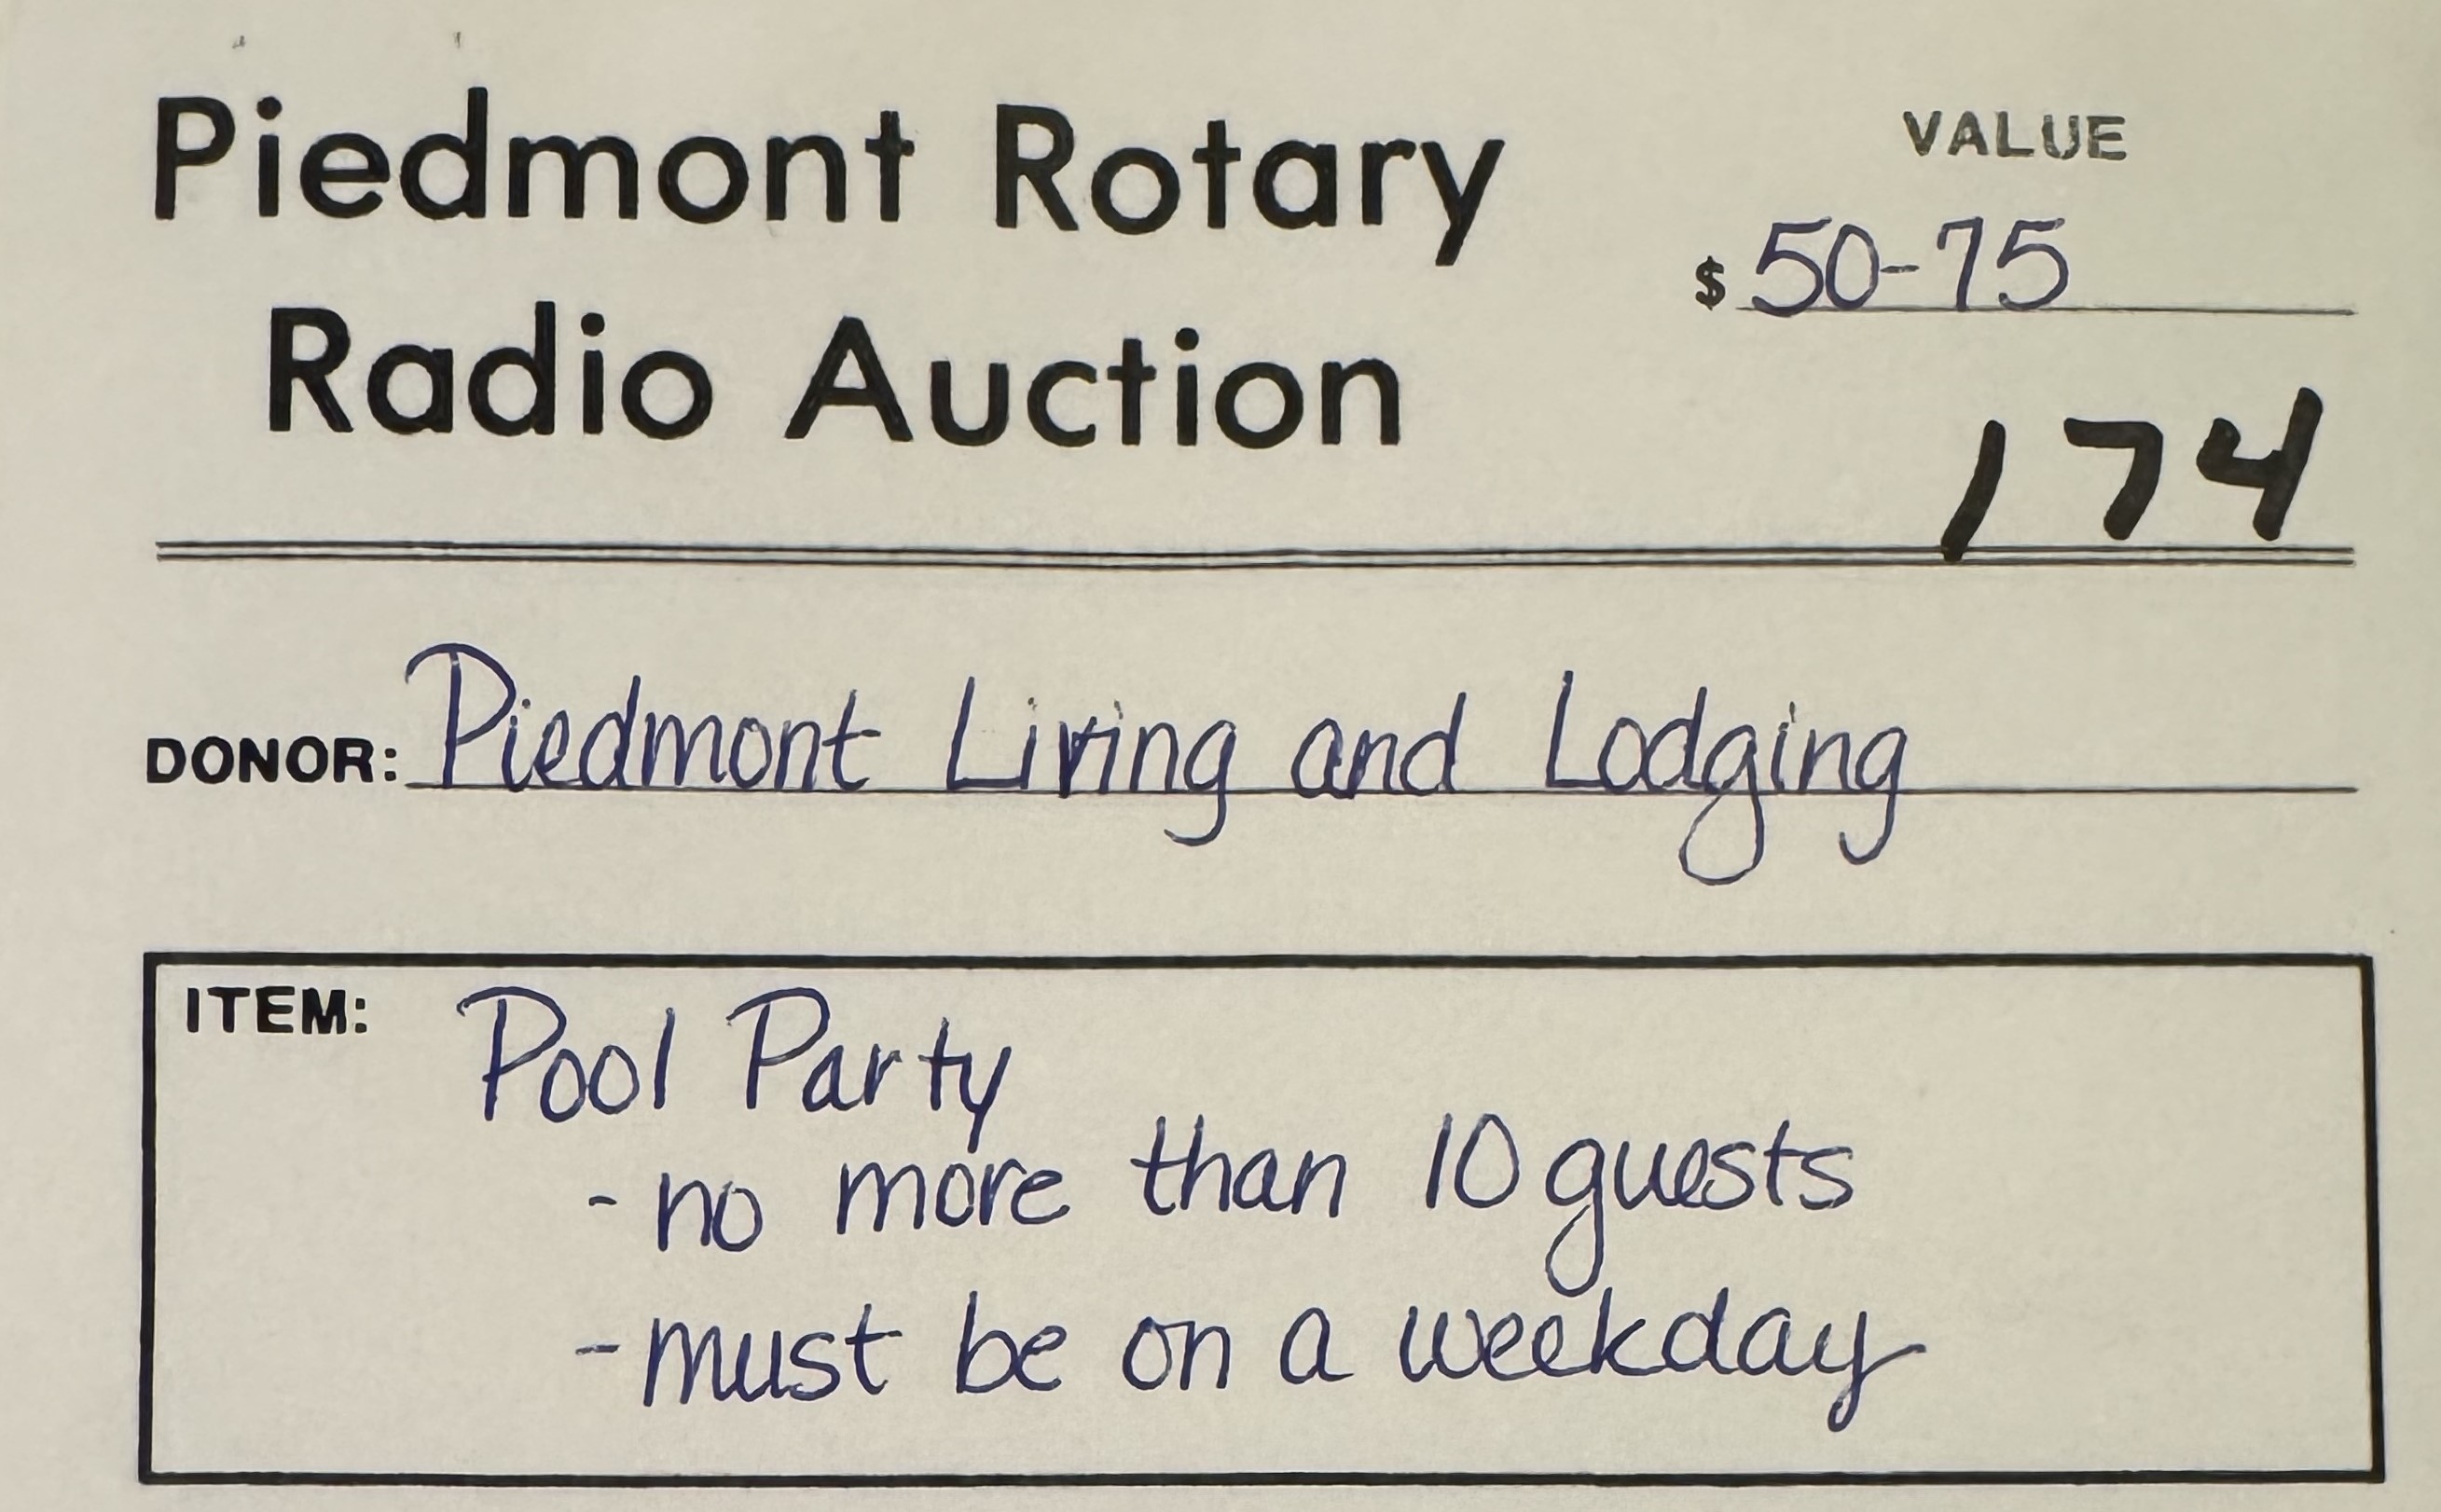 Piedmont Rotary
Radio Auction
VALUE
$ 50-75
174
DONOR: Piedmont Living and Lodging
ITEM: Pool Party
- no more than 10 guests
- must be on a weekday